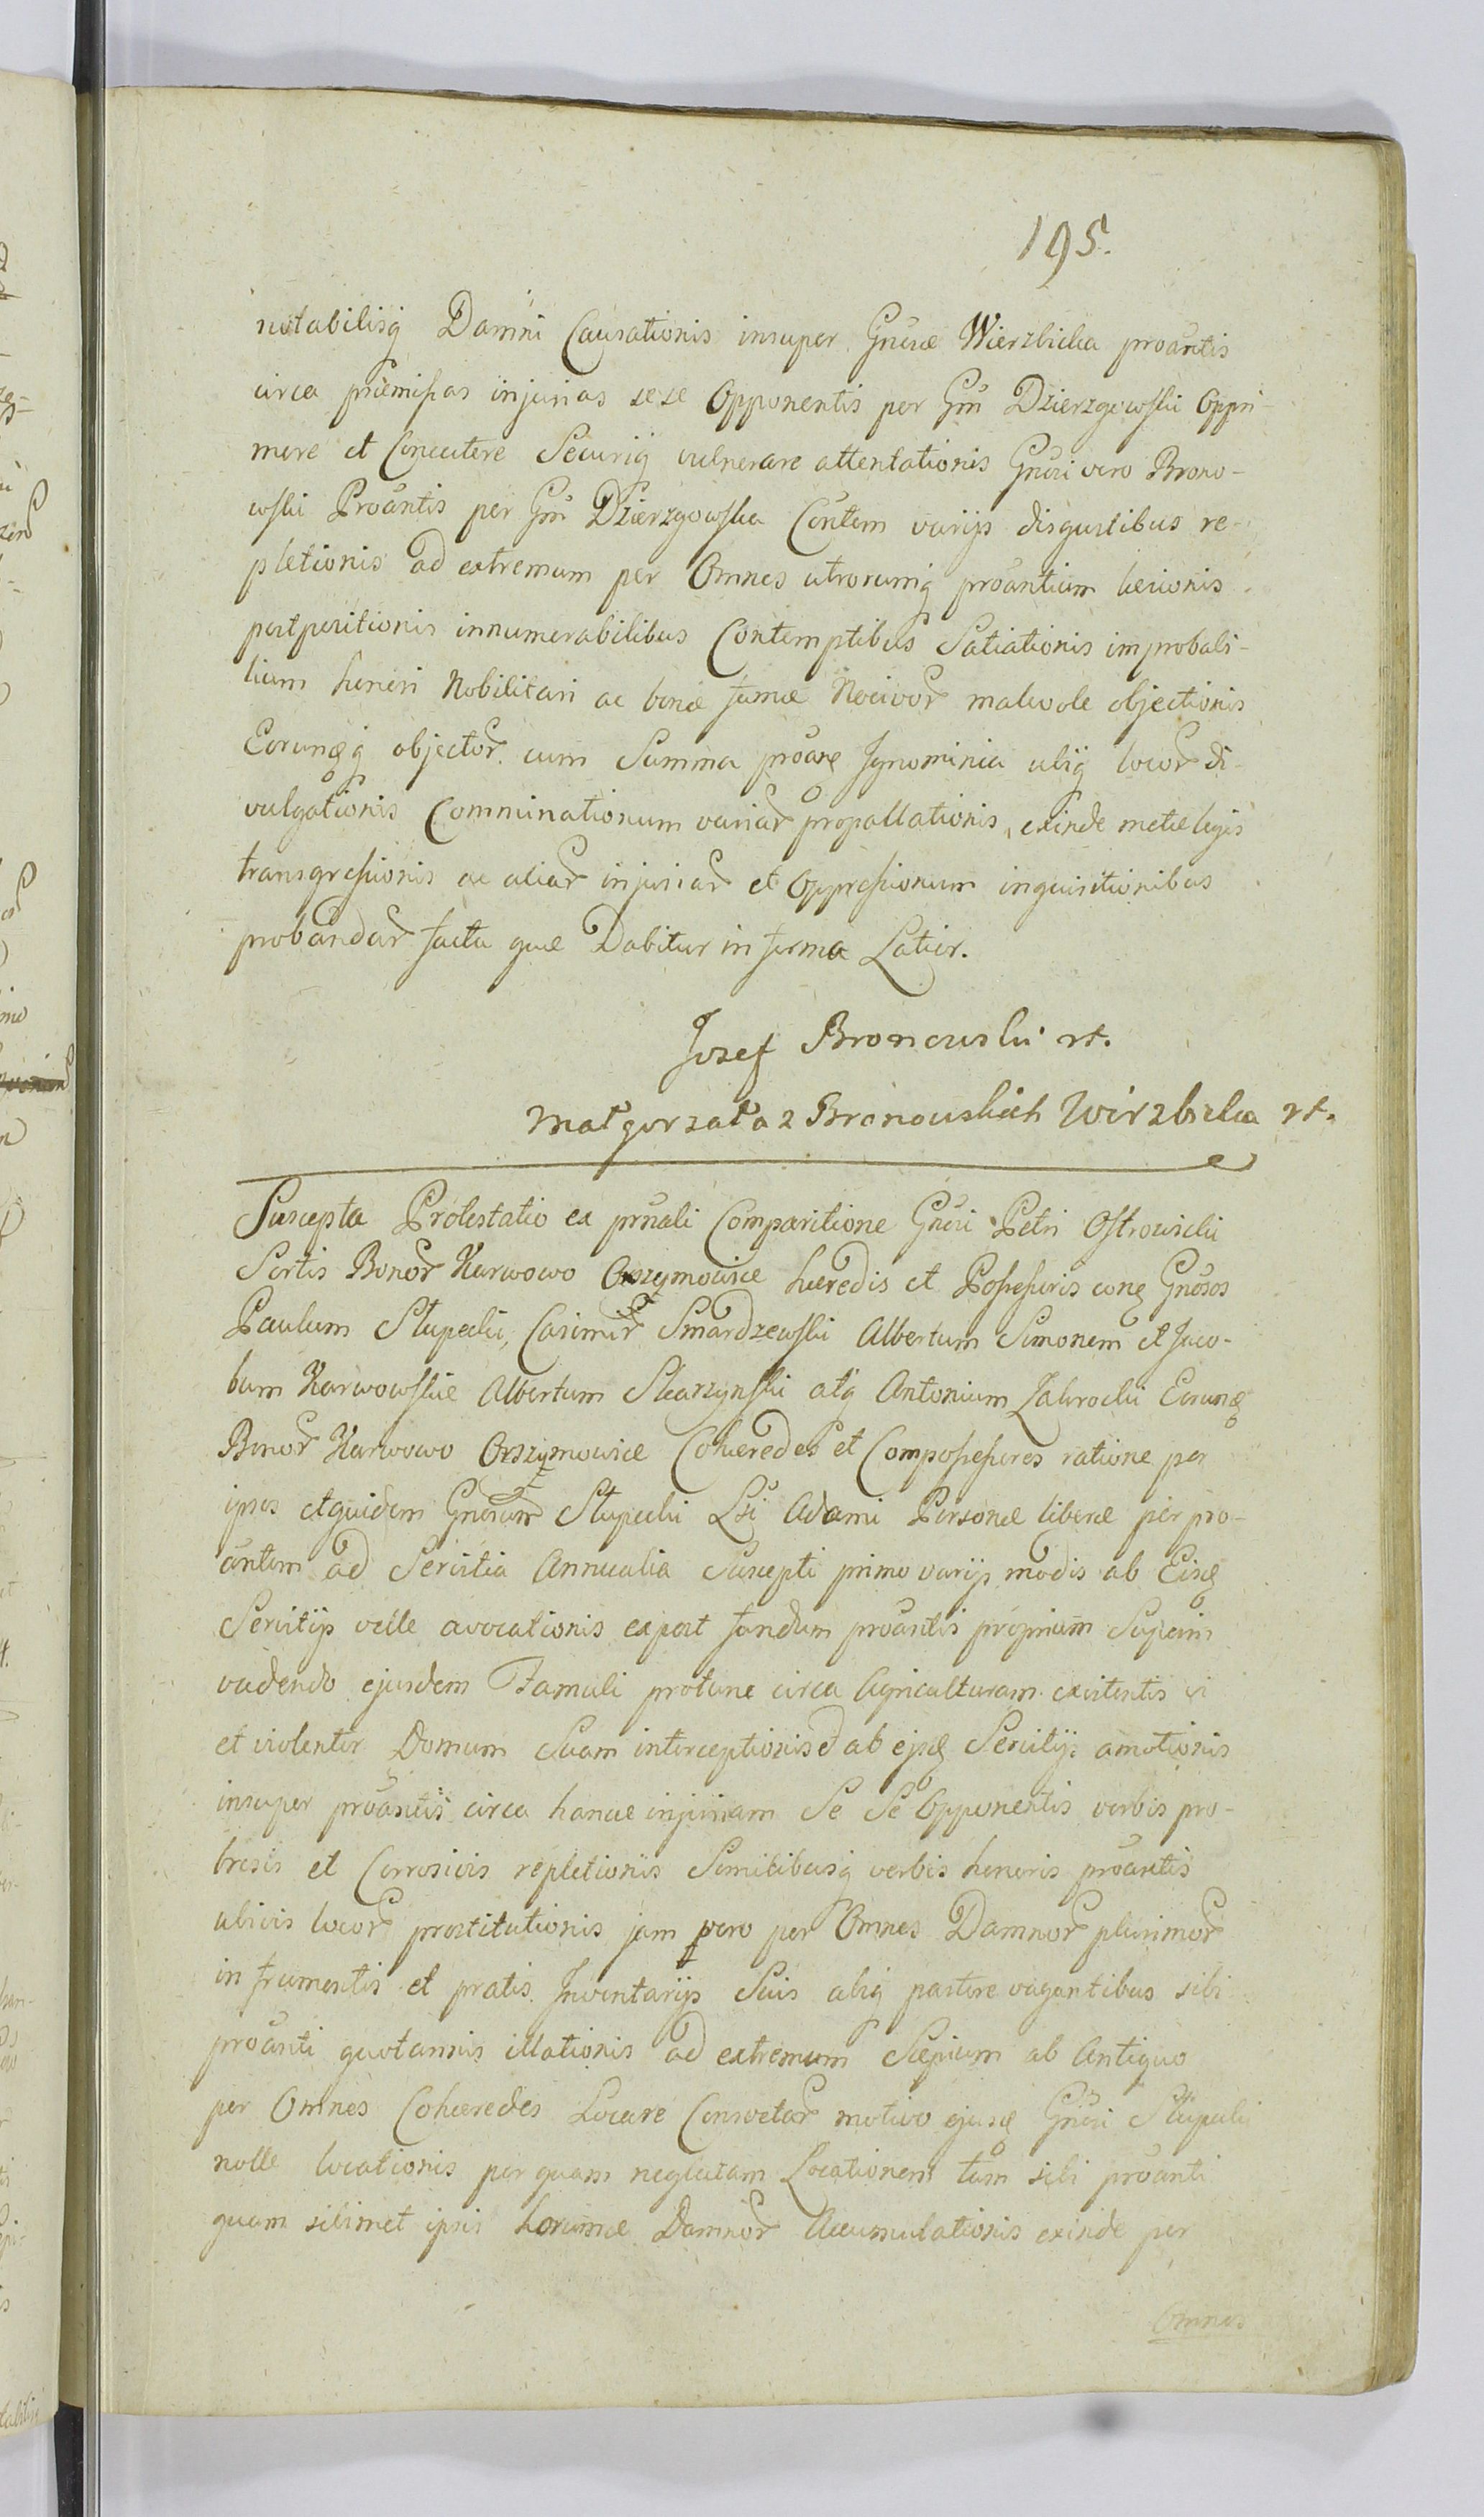 195.
notabilisq Damni Causationis insuper Gnosæ Wierzbicka proantis
circa præmissas injurias sese Opponentis per Gm Dzierzgowski Oppri-
mere et Concutere Securiq vulnerare attentationis Gnosi vero Brono-
wski Proantis per Gm Dzierzgowska Contem varijs disgustibus re-
pletionis ad extremum per Omnes utrorumq proantium læsionis
postpositionis innumerabilibus Contemptibus Satiationis improbabi-
lium honori Nobilitari ac bonæ famæ Nocivor malevole objectionis
Eorunq objector cum Summa proan Ignominia ubiq locor di-
vulgationis Comminationum variar propallationis, exinde metæ legis
transgressionis ac aliar injuriar et Oppressionum inquisitionibus
probandar facta quæ Dabitur in forma Latior.
Jozef Bronowski rt.
Małgorzata z Bronowskich Wirzbicka rt.
Suscepta Protestatio ex prnali Comparitione Gnosi Petri Ostrowicki
Sortis Bonor Karwowo Orszymowice hæredis et Possessoris con Gnosos
Paulum Słupecki, Casimir Smardzewski Albertum Simonem et Jaco-
bum Karwowskie Albertum Skarzynski atq Antonium Zakrocki Eorun
Bonor Karwowo Orszymowice Cohæredes et Compossessores ratione per
ipsos etquidem Gnosum Słupecki Lsi Adami Personæ liberæ per pro-
antem ad Servitia Annualia Suscepti primo varijs modis ab Eis
Servitijs velle avocationis expost fundum proantis proprium
vadendo ejusdem Famuli protunc circa Agriculturam existentis vi
et violenter Domum Suam interceptionis et ab ejs Servitijs amotionis
insuper proantis circa hancce injuriam Se Se Opponentis verbis pro-
brosis et Corrosivis repletionis Similibusq verbis honoris proantis
ubivis locor prostitutionis jam vero per Omnes Damnor plurimor
in frumentis et pratis Inventarijs Suis absq pastore vagantibus sibi
proanti quotannis illationis ad extremum Sepium ab Antiquo
per Omnes Cohæredes Locare Consvetar motivo ejus Gnosi Słupecki
nolle locationis per quam neglectam Locationem tam sibi proanti
quam sibimet ipsis Damnor Accumulationis exinde per
Omnes